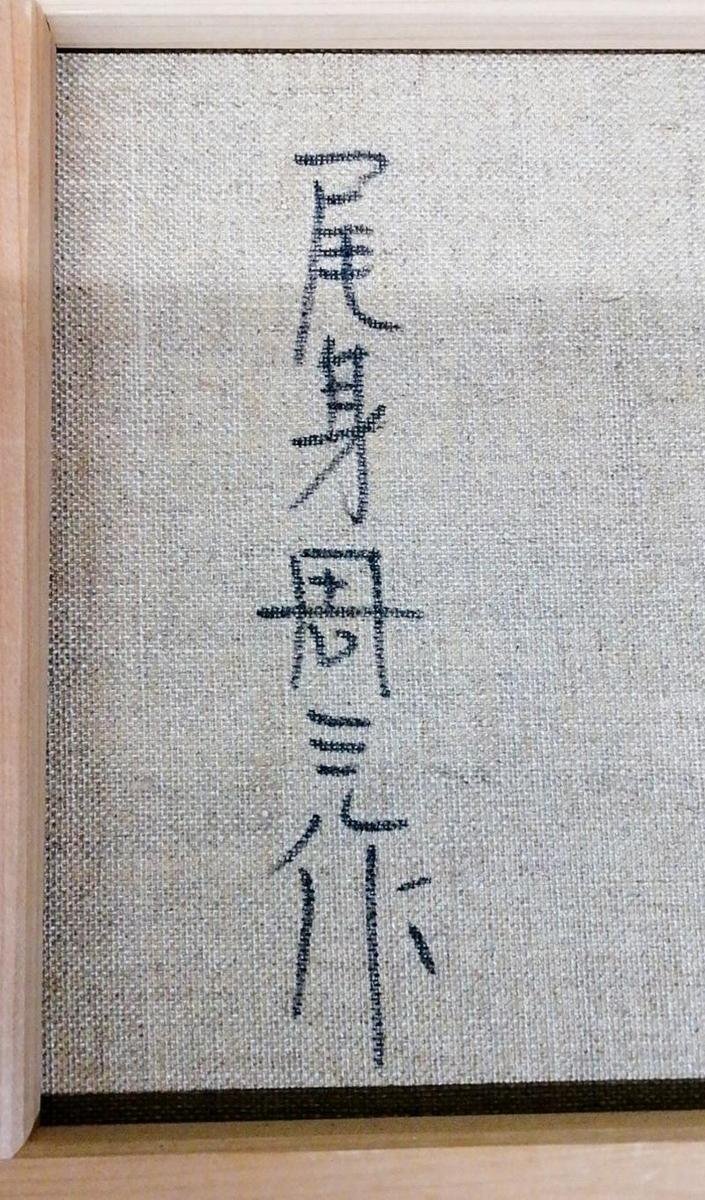 尾身周三作